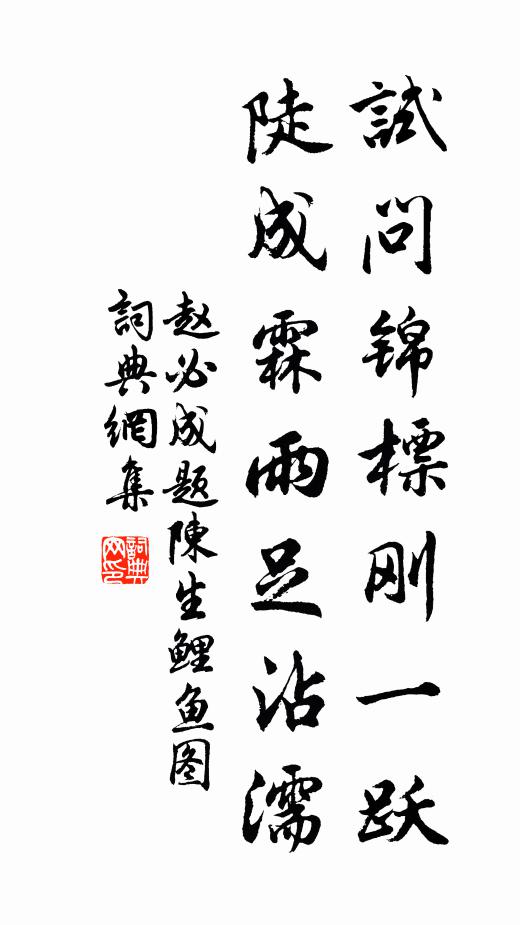 試问锦標刚一跃
陡成霖雨足沾濡
赵必成题陳生鯉鱼图
詞典網集
詞典
网印